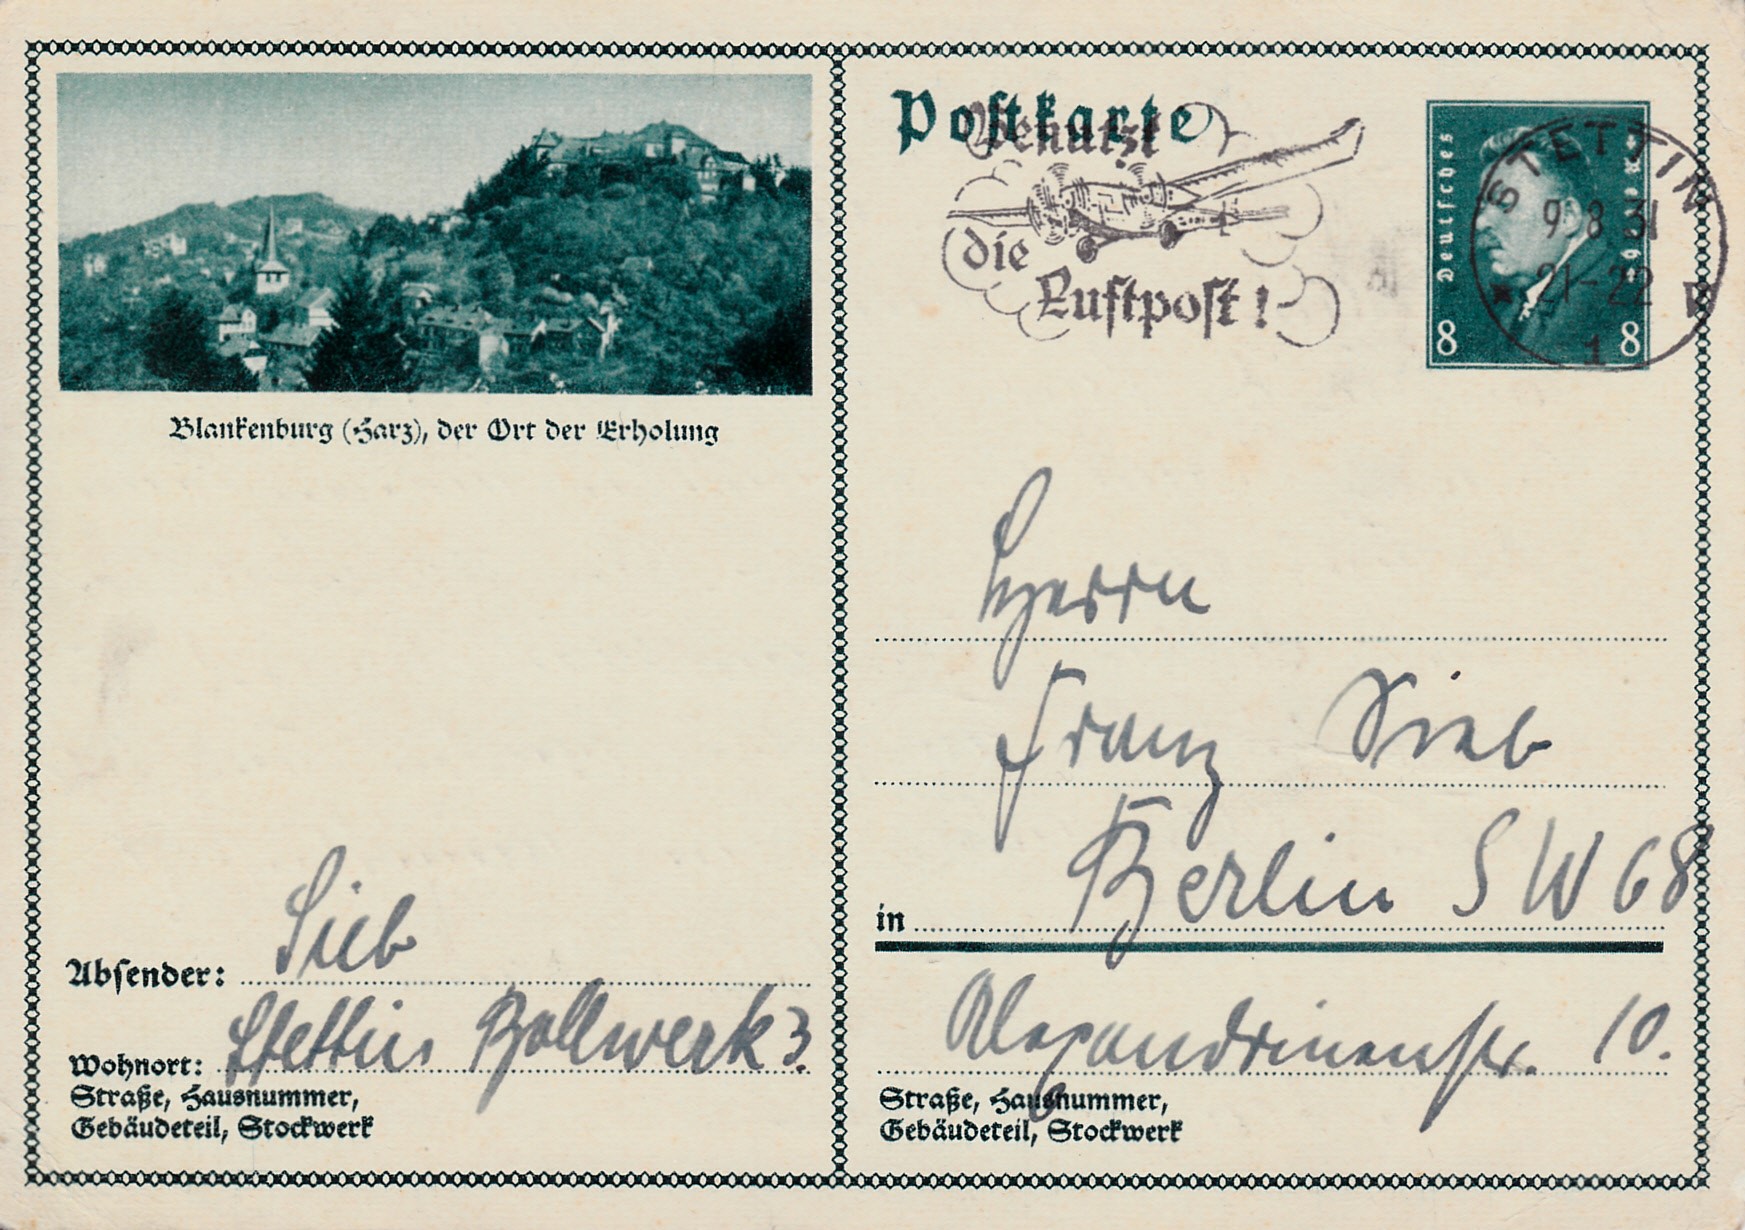 Blankenburg (Harz), der Ort der Erholung
Absender: Sieb
Wohnort: Stettin Bollwerk 3.
Straße, Hausnummer,
Gebäudeteil, Stockwerk
Postkarte
Benutzt
die
Luftpost!
Deutsches Reich
8 8
STETTIN
9.8.31
21-22
* 1
Herrn
Franz Sieb
in Berlin SW 68
Alexandrinenstr. 10.
Straße, Hausnummer,
Gebäudeteil, Stockwerk